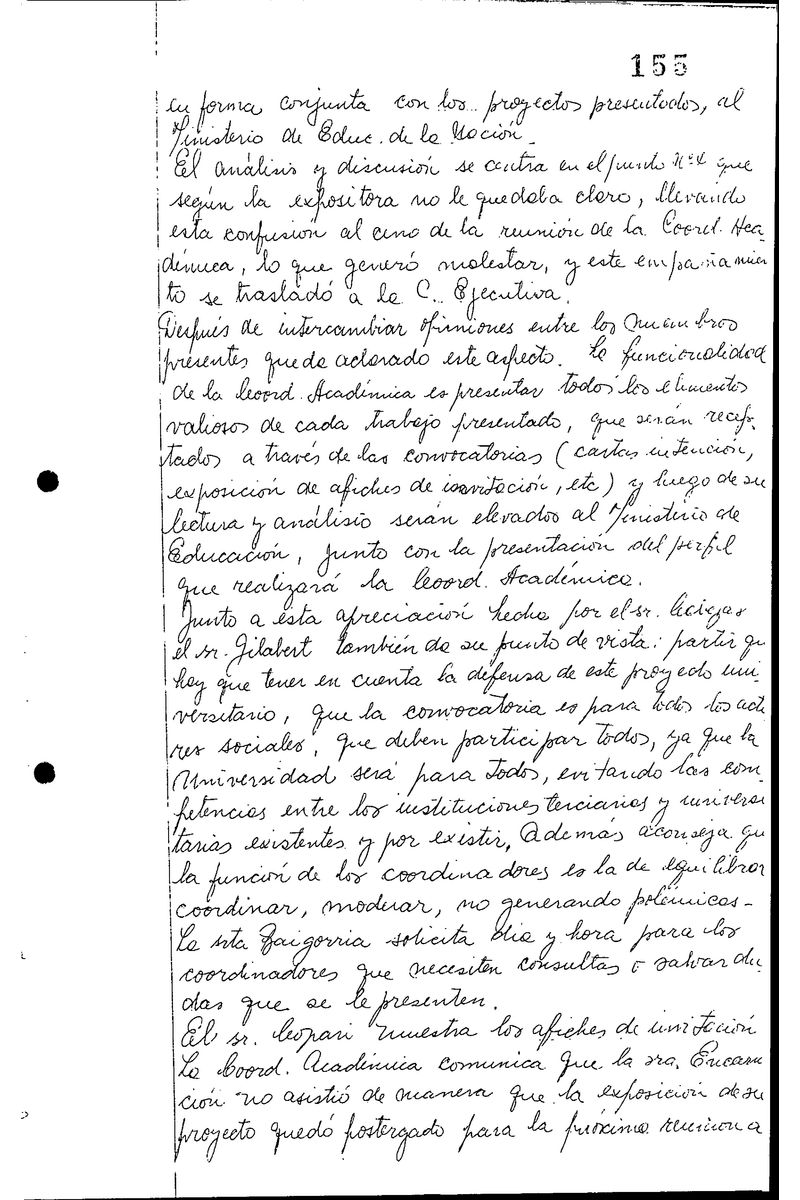 155
en forma conjunta con los proyectos presentados, al
Ministerio de Educ. de la Nación.
El análisis y discusión se centra en el punto Nº4 que
según la expositora no le quedaba claro, llevando
esta confusión al ceno de la reunión de la Coord. Aca-
démica, lo que generó malestar, y este empañamien
to se trasladó a la C. Ejecutiva.
Después de intercambiar opiniones entre los miembros
presentes queda aclarado este aspecto. La funcionalidad
de la Coord. Académica es presentar todos los elementos
valiosos de cada trabajo presentado, que serán recep-
tados a través de las convocatorias (cartas intención,
exposición de afiches de invitación, etc) y luego de su
lectura y análisis serán elevados al Ministerio de
Educación, junto con la presentación del perfil
que realizará la Coord. Académica.
Junto a esta apreciación hecha por el sr.
el sr. Gilabert también da su punto de vista: partir qu
hay que tener en cuenta la defensa de este proyecto uni-
versitario, que la convocatoria es para todos los acto
res sociales, que deben participar todos, ya que la
Universidad será para todos, evitando las com-
petencias entre los instituciones terciarias y universi
tarias existentes y por existir. Además aconseja qu
la función de los coordinadores es la de equilibrar
coordinar, moderar, no generando polémicas.-
La srta Baigorria solicita dia y hora para los
coordinadores que necesiten consultas o salvar du-
das que se le presenten.
El sr. Leopari muestra los afiches de invitación
La Coord. Académica comunica que la sra. Encarna
ción no asistió de manera que la exposición de su
proyecto quedó postergado para la próxima reunion a